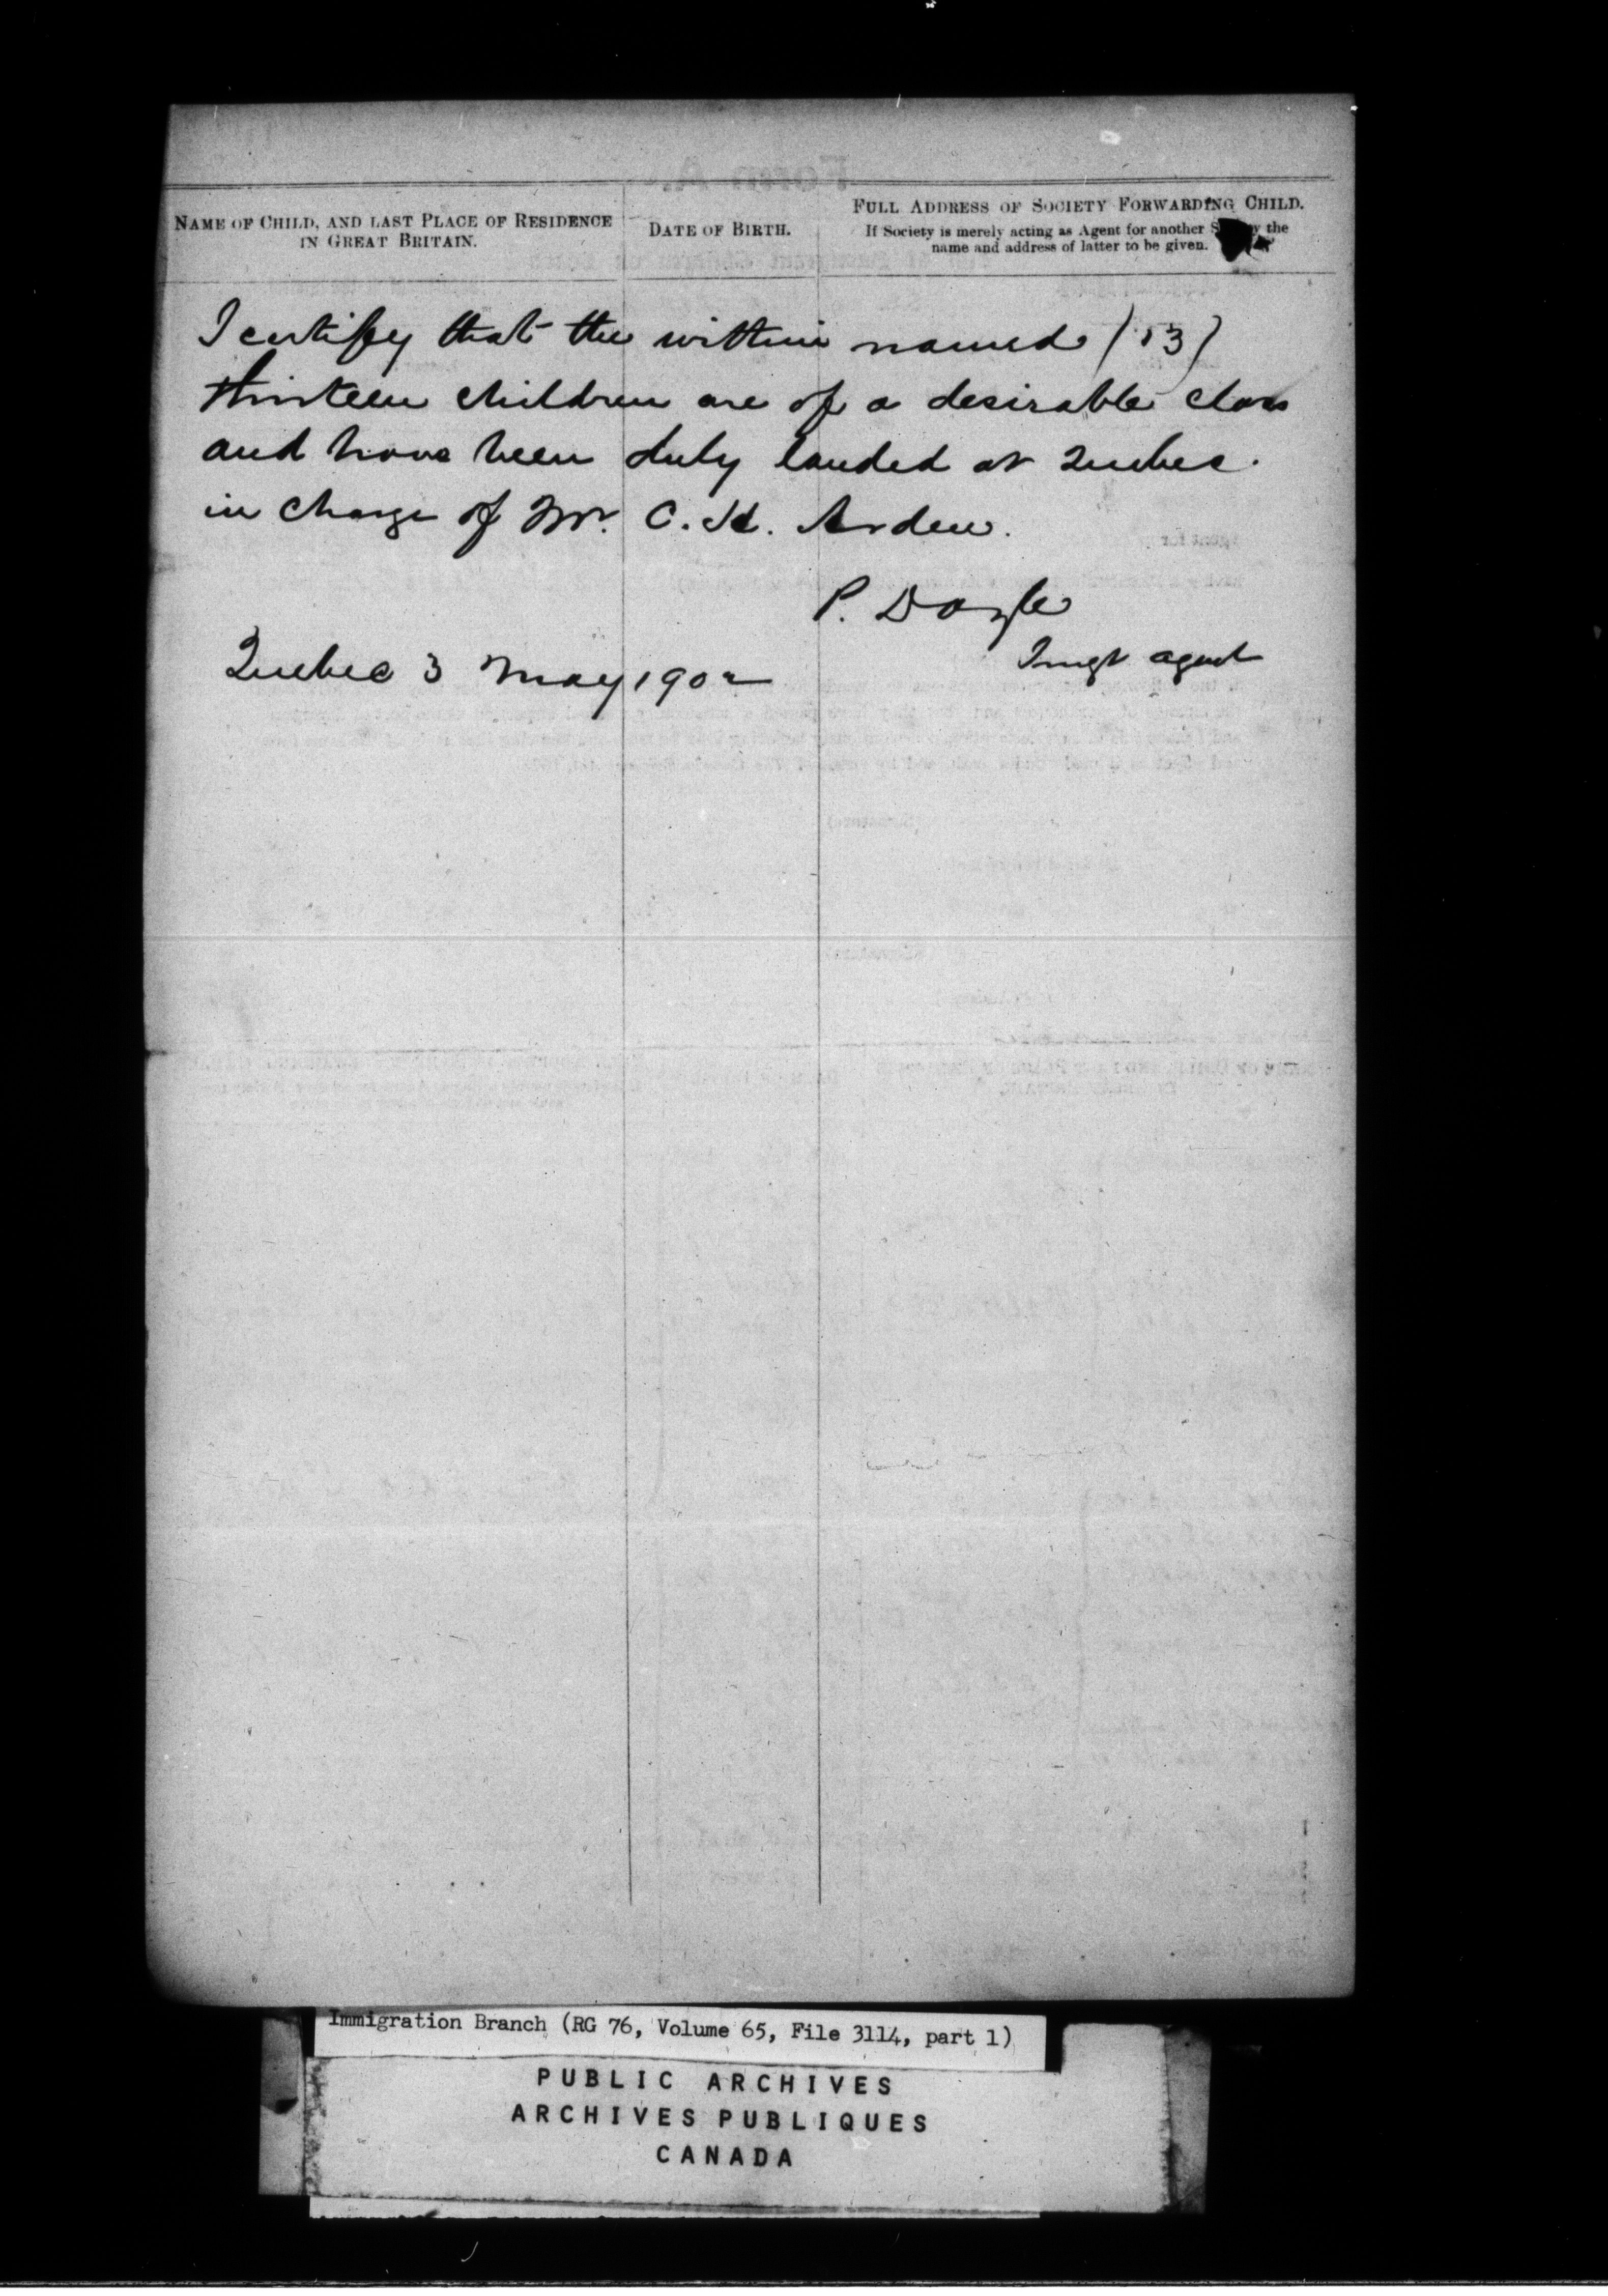 NAME OF CHILD, AND LAST PLACE OF RESIDENCE
IN GREAT BRITAIN.
DATE OF BIRTH.
FULL ADDRESS OF SOCIETY FORWARDING CHILD.
If Society is merely acting as Agent for another the
name and address of latter to be given.
I certify that the within named (13)
thirteen children are of a desirable class
and have been duly landed at Quebec.
in charge of Mr. C. H. Arden.
P. Doyle
Imgt agent
Quebec 3 May 1902
Immigration Branch (RG 76, Volume 65, File 3114, part 1)
PUBLIC ARCHIVES
ARCHIVES PUBLIQUES
CANADA